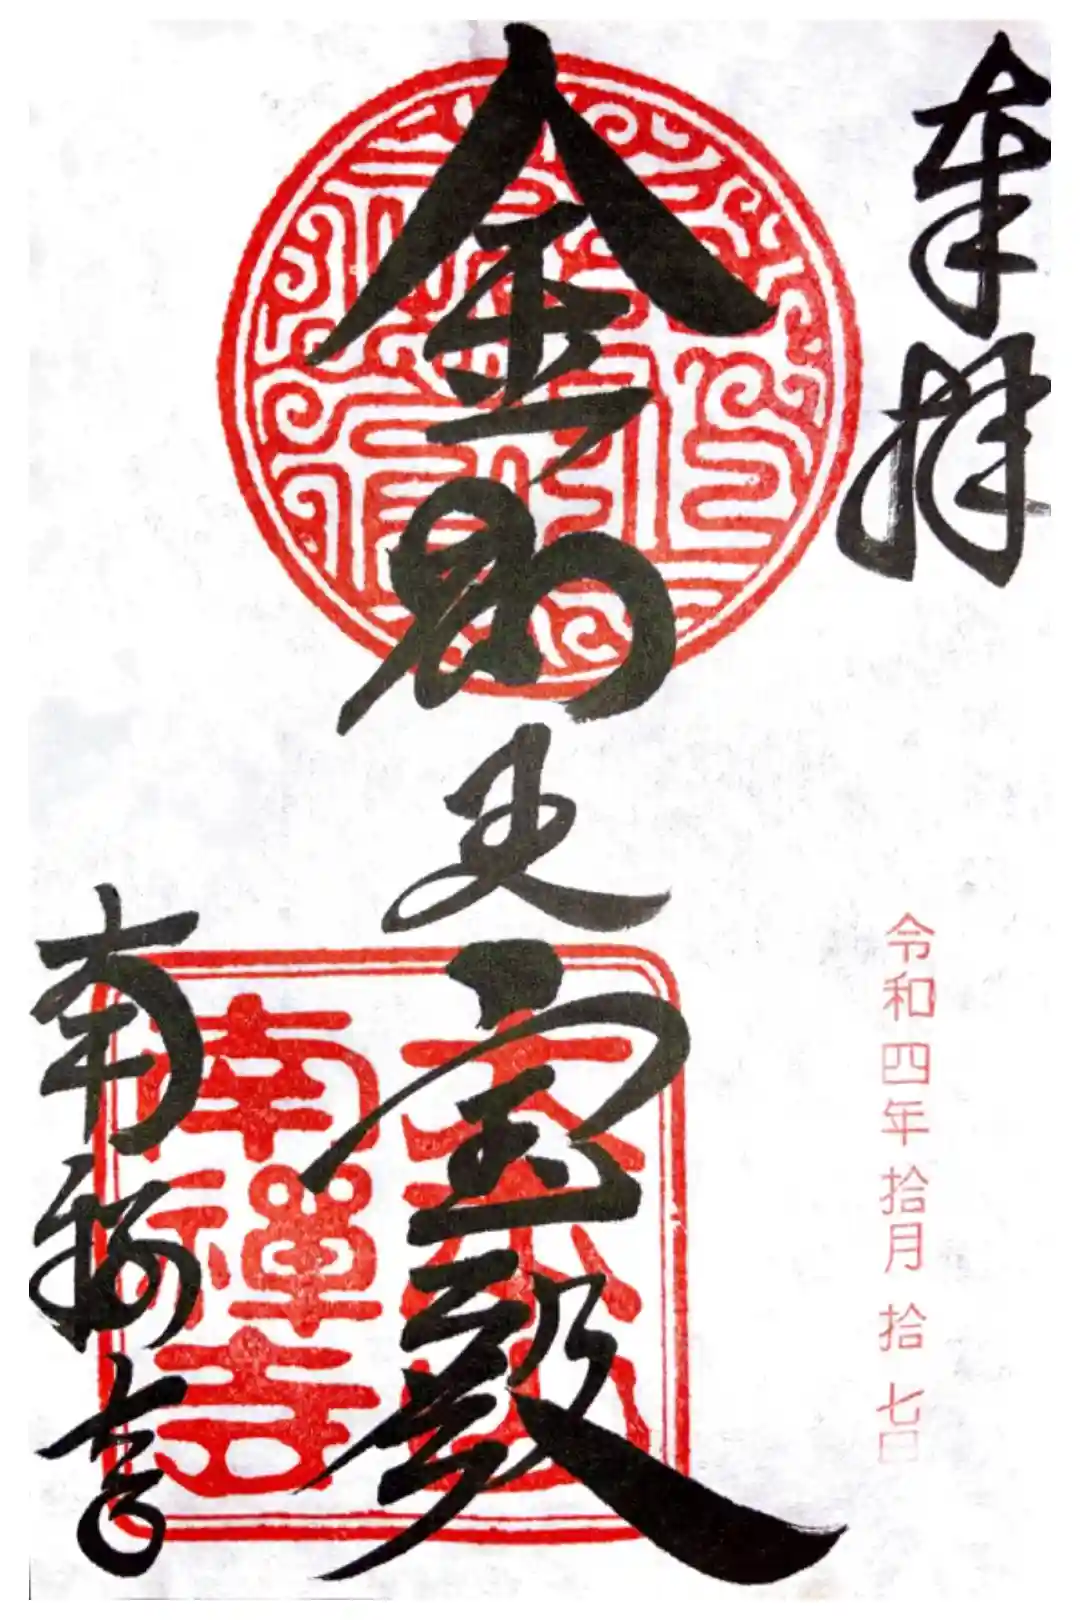 奉拝
令和四年拾月拾七日
金剛王宝殿
大本山
南禪寺
南禅寺